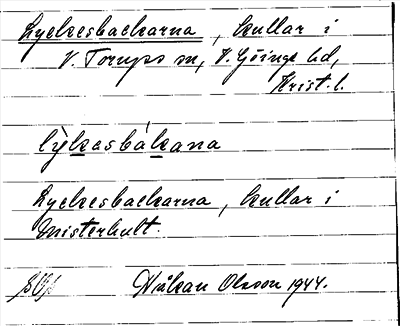 Lyckesbackarna, kullar i
V. Torups sn, V. Göinge hd,
Krist. l.
lỳkesbákana
Lyckesbackarna, kullar i
Misterhult.
Håkan Olsson 1944.